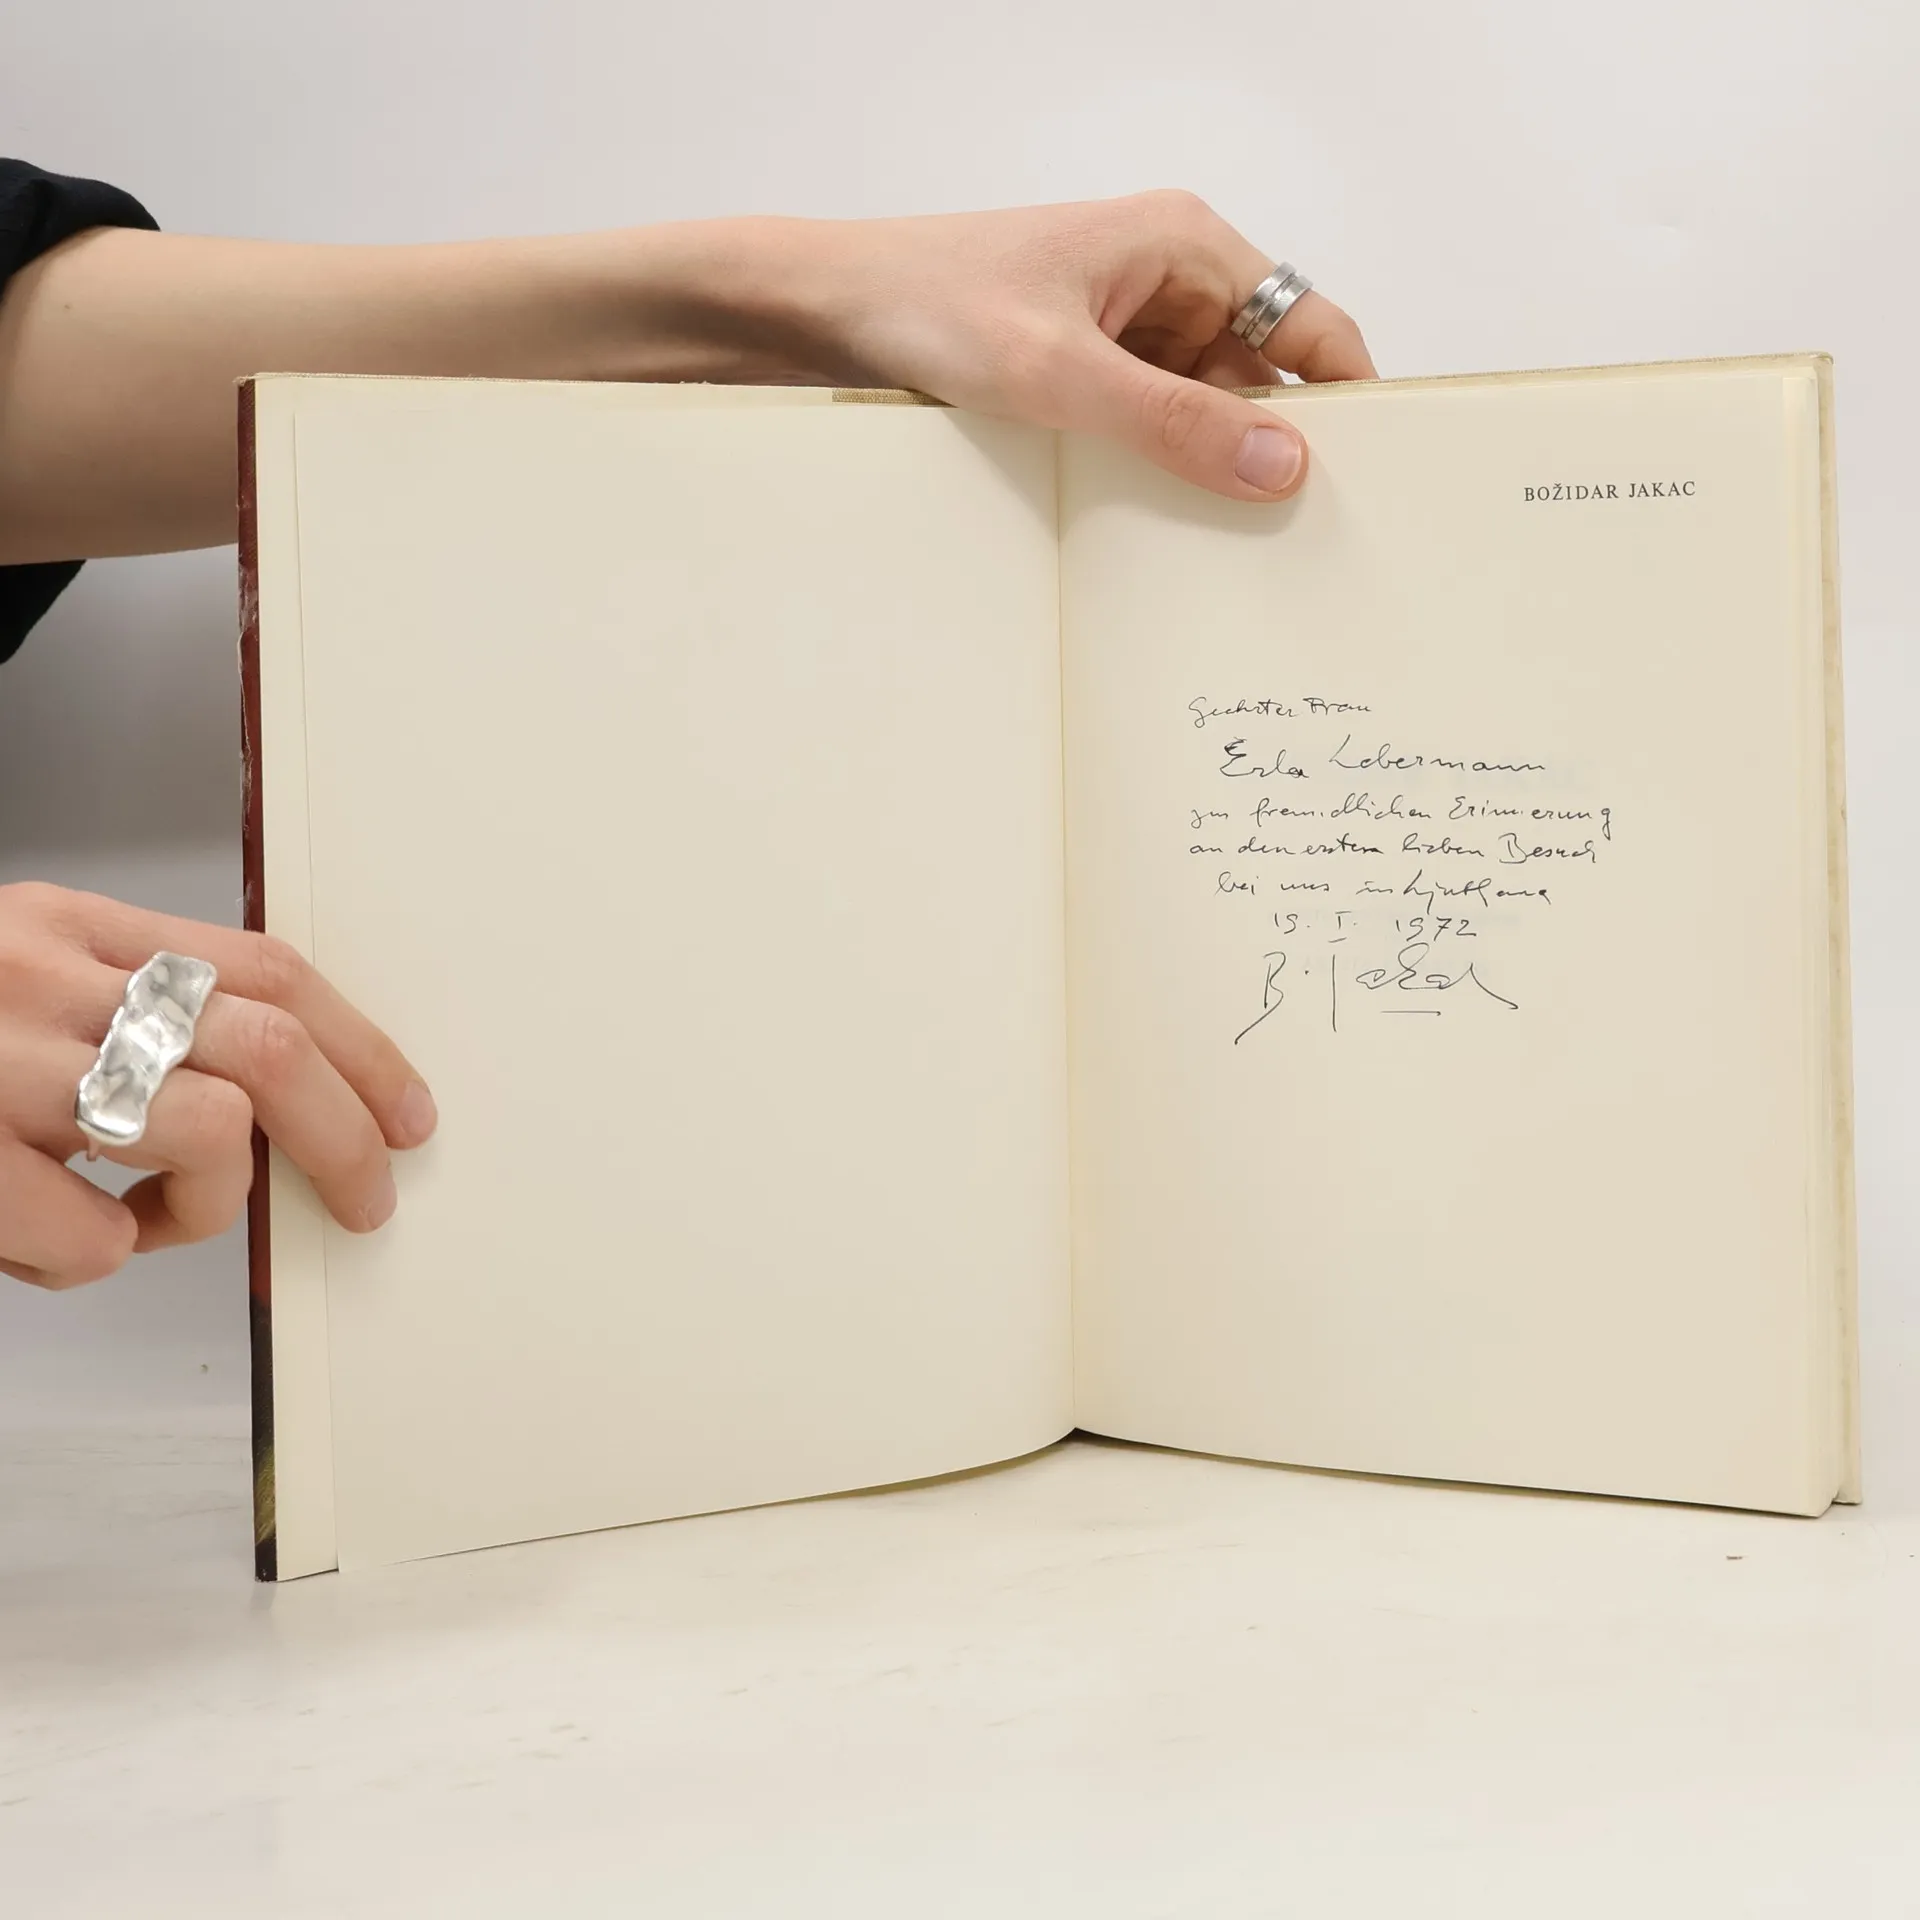 BOŽIDAR JAKAC
Geehrter Frau
Erla Lebermann
zur freundlichen Erinnerung
an den ersten lieben Besuch
bei uns in Ljubljana
19. I. 1972
B. Jakac